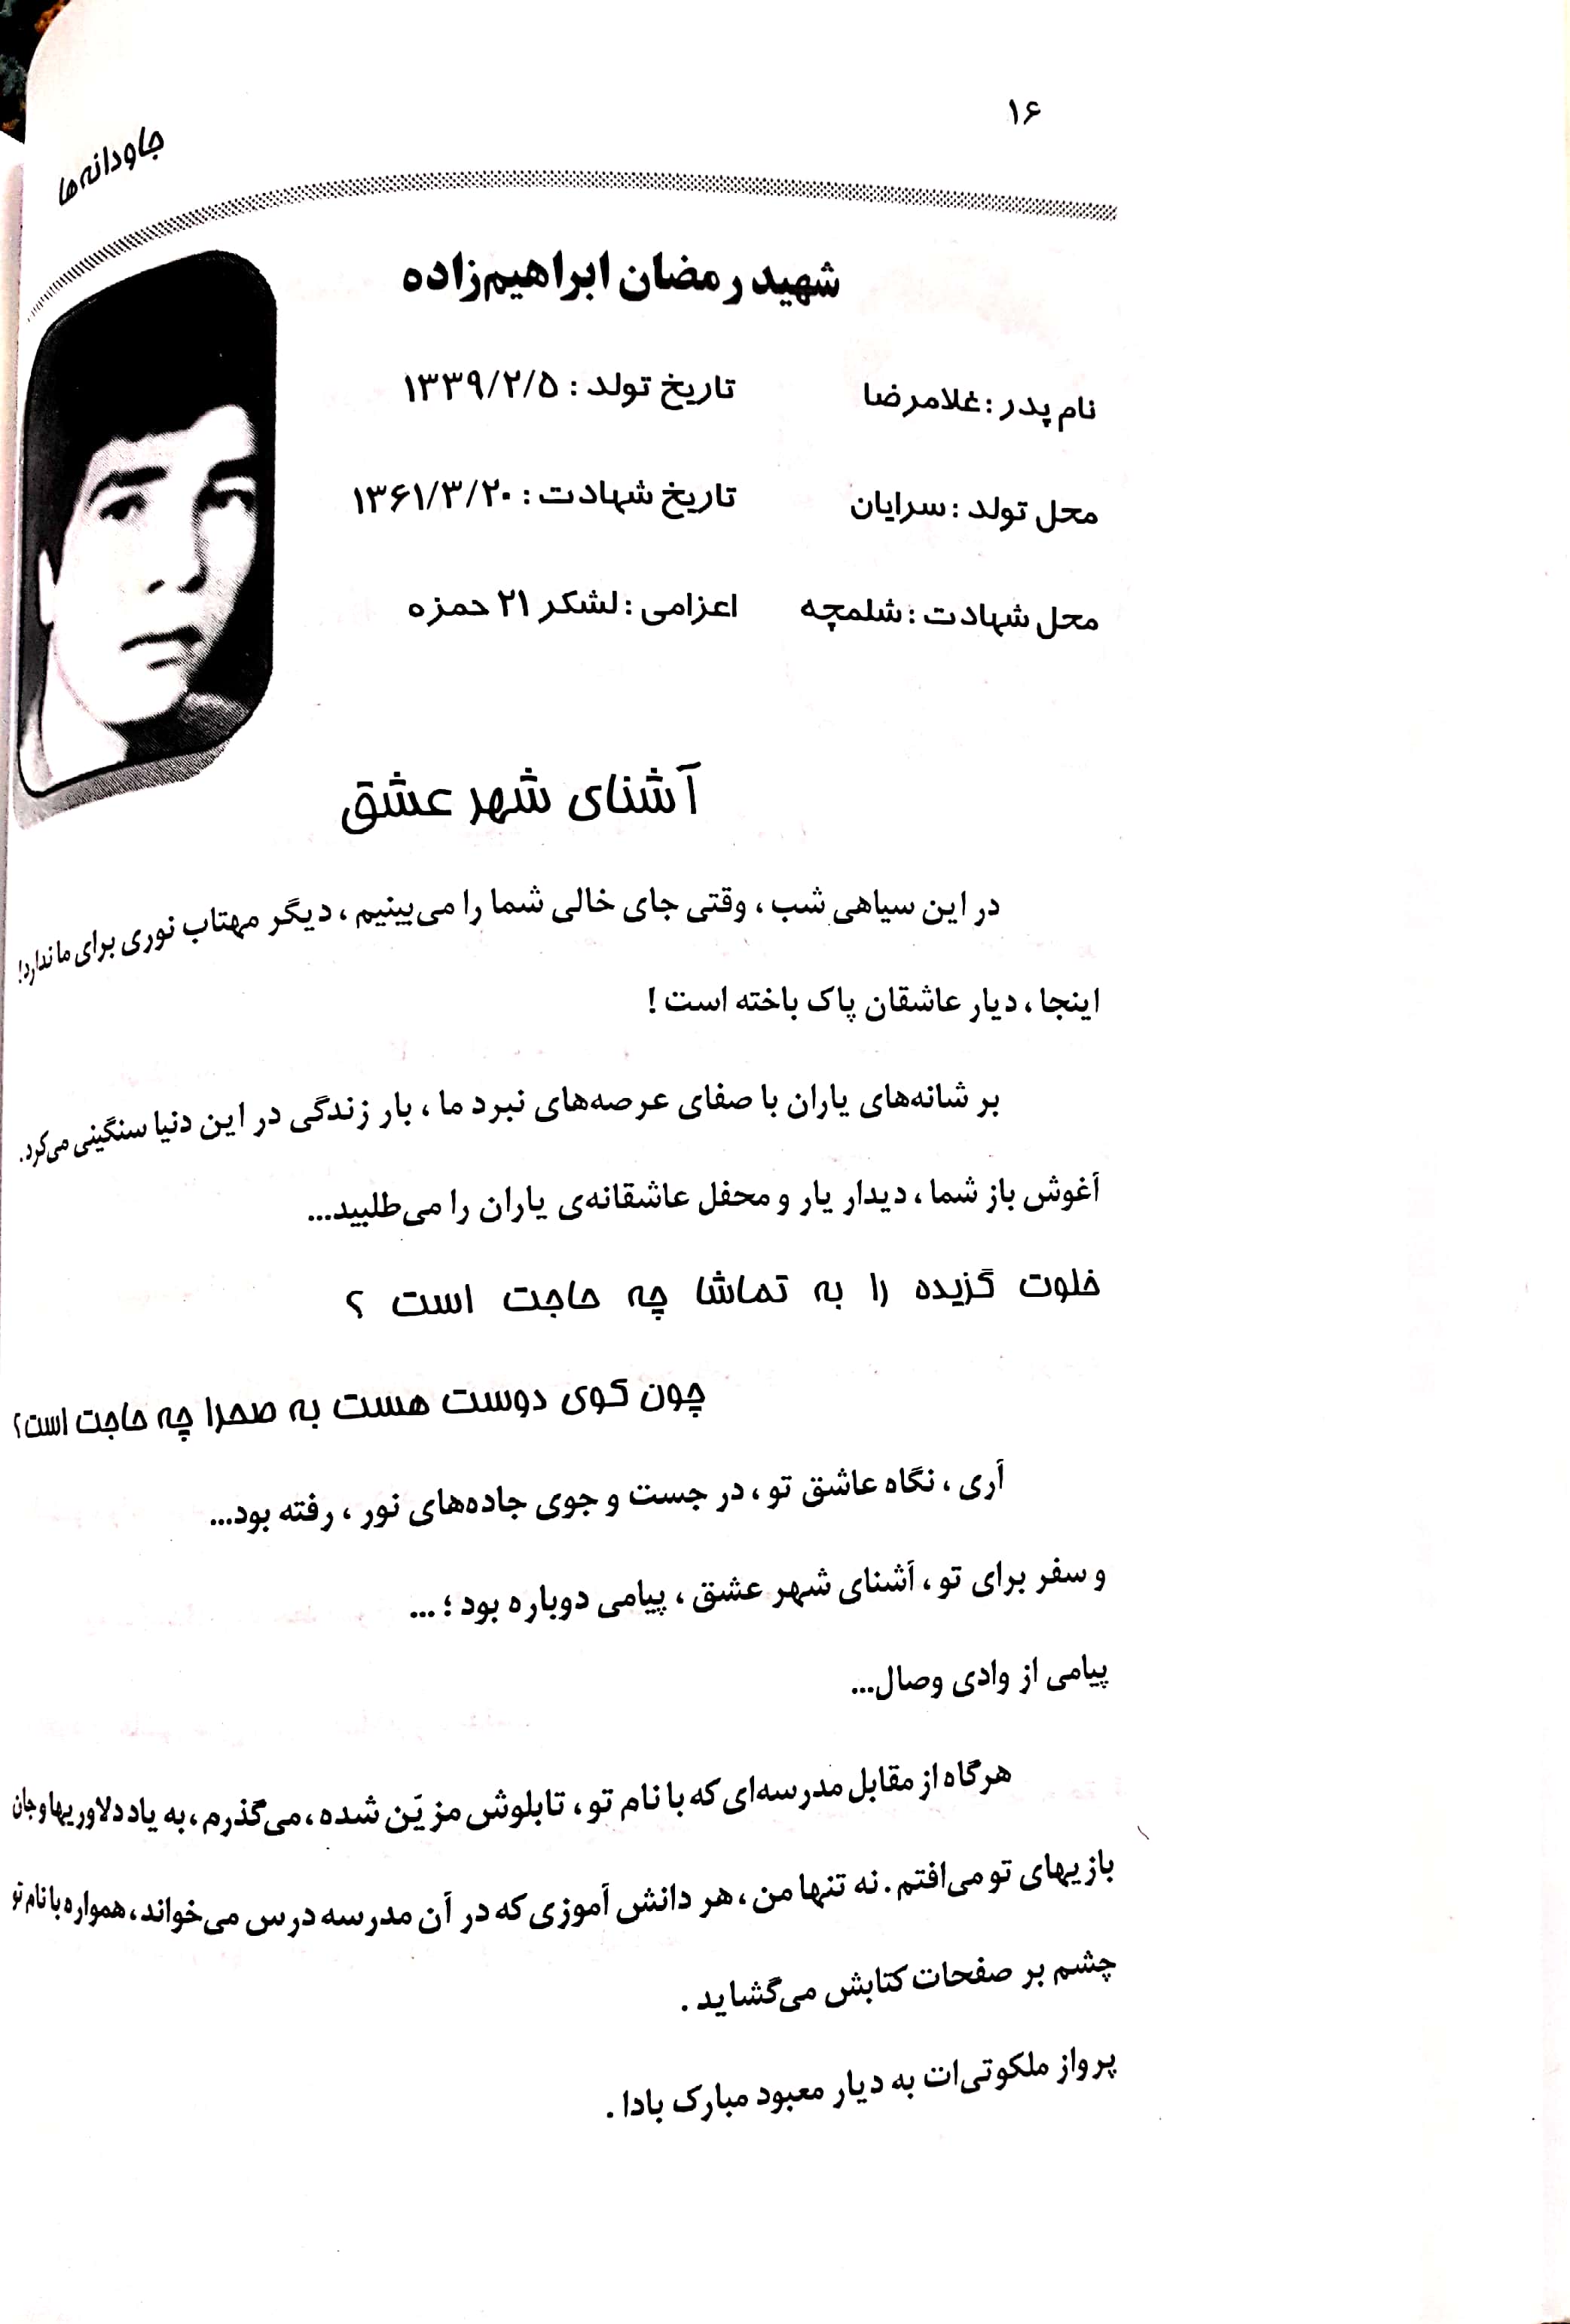 ۱۶
جاودانه‌ها
شهید رمضان ابراهیم‌زاده
نام پدر : غلامرضا
تاریخ تولد : ۱۳۳۹/۲/۵
محل تولد : سرایان
تاریخ شهادت : ۱۳۶۱/۳/۲۰
محل شهادت : شلمچه
اعزامی : لشکر ۲۱ حمزه
آشنای شهر عشق
در این سیاهی شب ، وقتی جای خالی شما را می‌بینیم ، دیگر مهتاب نوری برای ما ندارد!
اینجا ، دیار عاشقان پاک باخته است !
بر شانه‌های یاران با صفای عرصه‌های نبرد ما ، بار زندگی در این دنیا سنگینی می‌کرد.
آغوش باز شما ، دیدار یار و محفل عاشقانه‌ی یاران را می‌طلبید...
خلوت گزیده را به تماشا چه حاجت است ؟
چون کوی دوست هست به صحرا چه حاجت است؟
آری ، نگاه عاشق تو ، در جست و جوی جاده‌های نور ، رفته بود...
و سفر برای تو ، آشنای شهر عشق ، پیامی دوباره بود ؛ ...
پیامی از وادی وصال...
هرگاه از مقابل مدرسه‌ای که با نام تو ، تابلوش مزیّن شده ، می‌گذرم ، به یاد دلاوریها و جان
بازیهای تو می‌افتم . نه تنها من ، هر دانش آموزی که در آن مدرسه درس می‌خواند ، همواره با نام تو
چشم بر صفحات کتابش می‌گشاید .
پرواز ملکوتی‌ات به دیار معبود مبارک بادا .